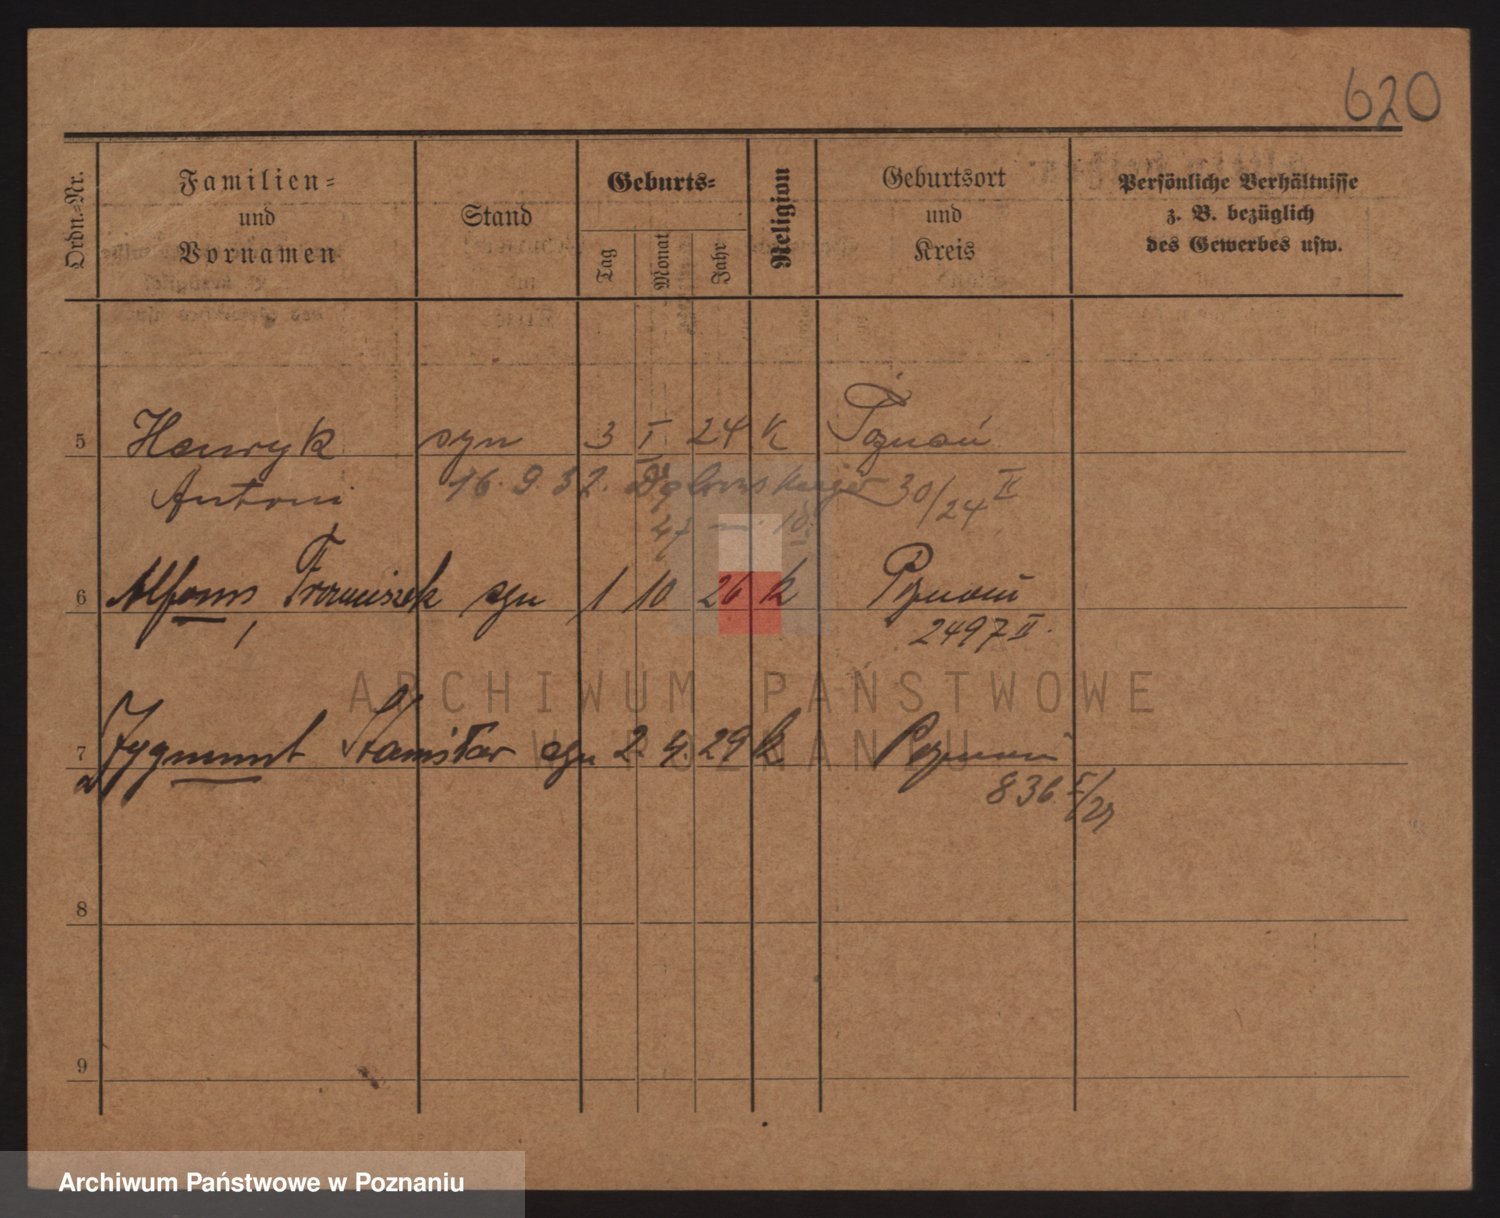 620
Ordn.=Nr. Familien= und Vornamen Stand Geburts= Tag Monat Jahr Religion Geburtsort und Kreis Persönliche Verhältnisse z. B. bezüglich des Gewerbes usw.
5 Henryk syn 3 I 24 K Poznań
Antoni 16.9.32. 30/24 II
47 — 10
6 Alfons, Franciszek syn 1 10 26 K Poznań
2497 II.
ARCHIWUM PAŃSTWOWE
7 Zygmunt Stanisław syn 2. 4. 29 K Poznań
W POZNANIU
836 I/29
8
9
Archiwum Państwowe w Poznaniu